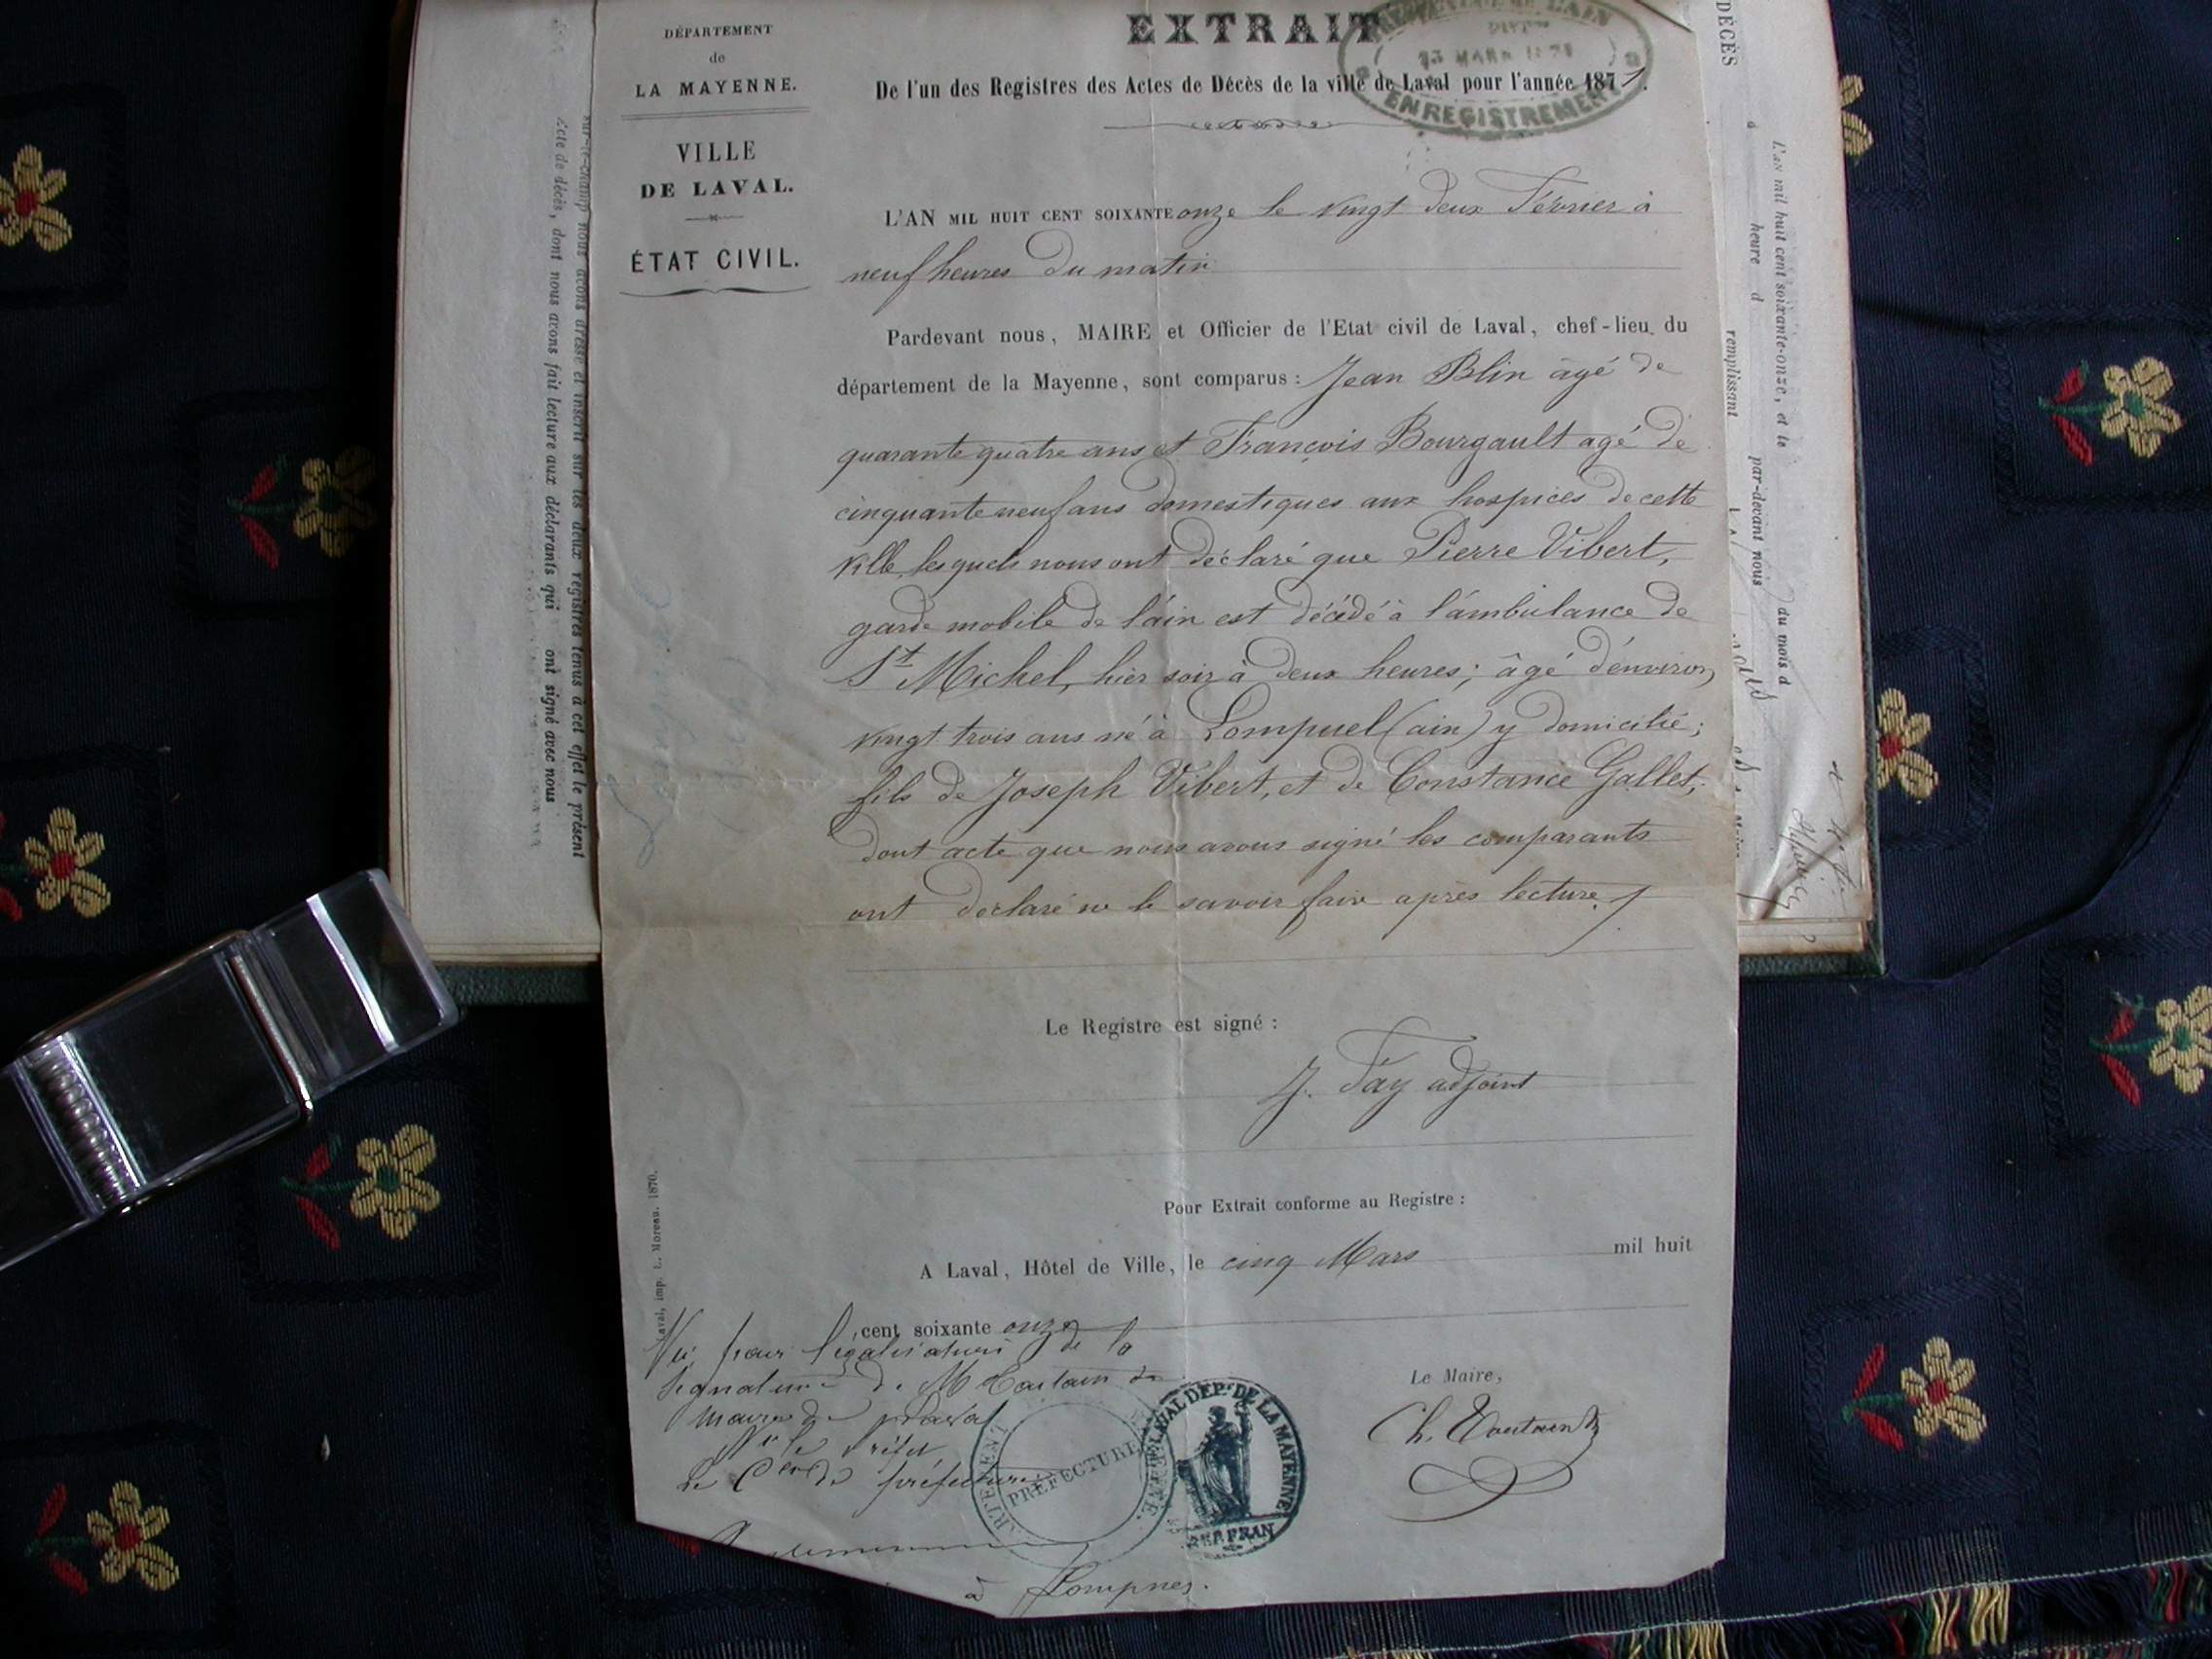 DÉPARTEMENT
de
LA MAYENNE.
VILLE
DE LAVAL.
ÉTAT CIVIL.
EXTRAIT
De l'un des Registres des Actes de Décès de la ville de Laval pour l'année 1871.
ENREGISTREMENT
L'AN MIL HUIT CENT SOIXANTE onze le vingt deux Février à
neuf heures du matin
Pardevant nous, MAIRE et Officier de l'Etat civil de Laval, chef-lieu du
département de la Mayenne, sont comparus : Jean Blin âgé de
quarante quatre ans et François Bourgault agé de
cinquante neuf ans domestiques aux hospices de cette
ville, lesquels nous ont déclaré que Pierre Vibert,
garde mobile de l'ain est décédé à l'ambulance de
St Michel, hier soir à deux heures; âgé d'environ
vingt trois ans né à Lompuel (ain) y domicilié;
fils de Joseph Vibert, et de Constance Gallet;
dont acte que nous avons signé les comparants
ont declaré ne le savoir faire après lecture.
Le Registre est signé :
J. Fay adjoint
Pour Extrait conforme au Registre :
A Laval, Hôtel de Ville, le cinq Mars mil huit
cent soixante onze
Le Maire,
Ch. Toutain
Vu pour légalisation de la
signature de M Toutain
maire de Laval
Le Préfet
Le Cer de préfecture
PRÉFECTURE
LAVAL DEP. DE LA MAYENNE
REP. FRAN
à Lompnes.
Laval, imp. L. Moreau. 1870.
sur-le-champ nous avons dressé et inscrit sur les deux registres tenus à cet effet le présent
acte de décès, dont nous avons fait lecture aux déclarants qui ont signé avec nous
DÉCÈS
L'an mil huit cent soixante-onze, et le du mois d
à heure d par-devant nous
remplissant